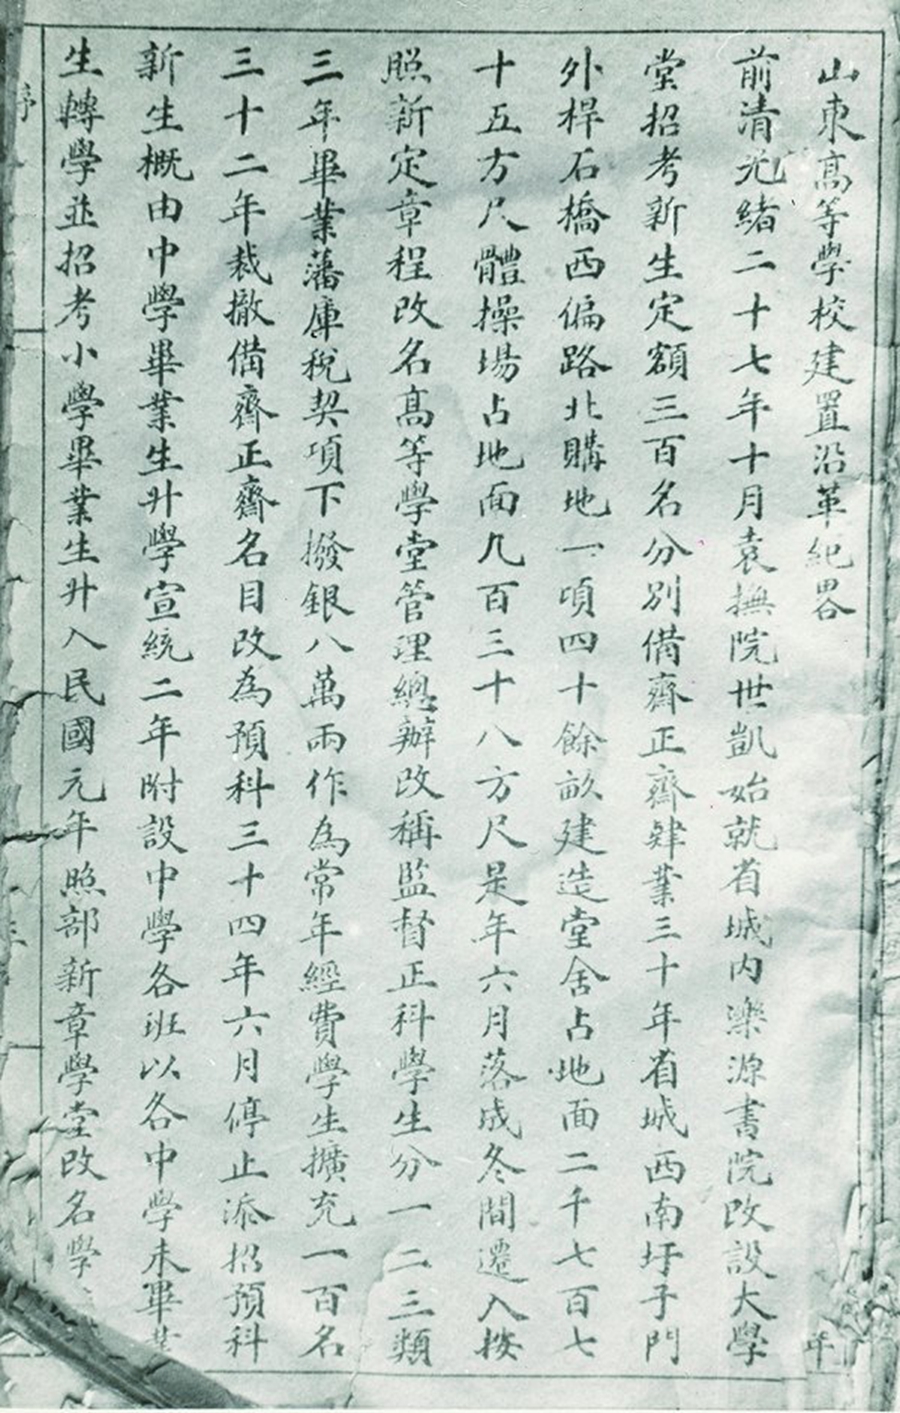 山東高等學校建置沿革紀畧
前清光緒二十七年十月袁撫院世凱始就省城內濼源書院改設大學
堂招考新生定額三百名分別備齋正齋肄業三十年省城西南圩子門
外桿石橋西偏路北購地一項四十餘畝建造堂舍占地面二千七百七
十五方尺體操場占地面九百三十八方尺是年六月落成冬間遷入按
照新定章程改名高等學堂管理總辦改稱監督正科學生分一二三類
三年畢業藩庫稅契項下撥銀八萬兩作為常年經費學生擴充一百名
三十二年裁撤備齋正齋名目改為預科三十四年六月停止添招預科
新生概由中學畢業生升學宣統二年附設中學各班以各中學未畢業
生轉學並招考小學畢業生升入民國元年照部新章學堂改名學